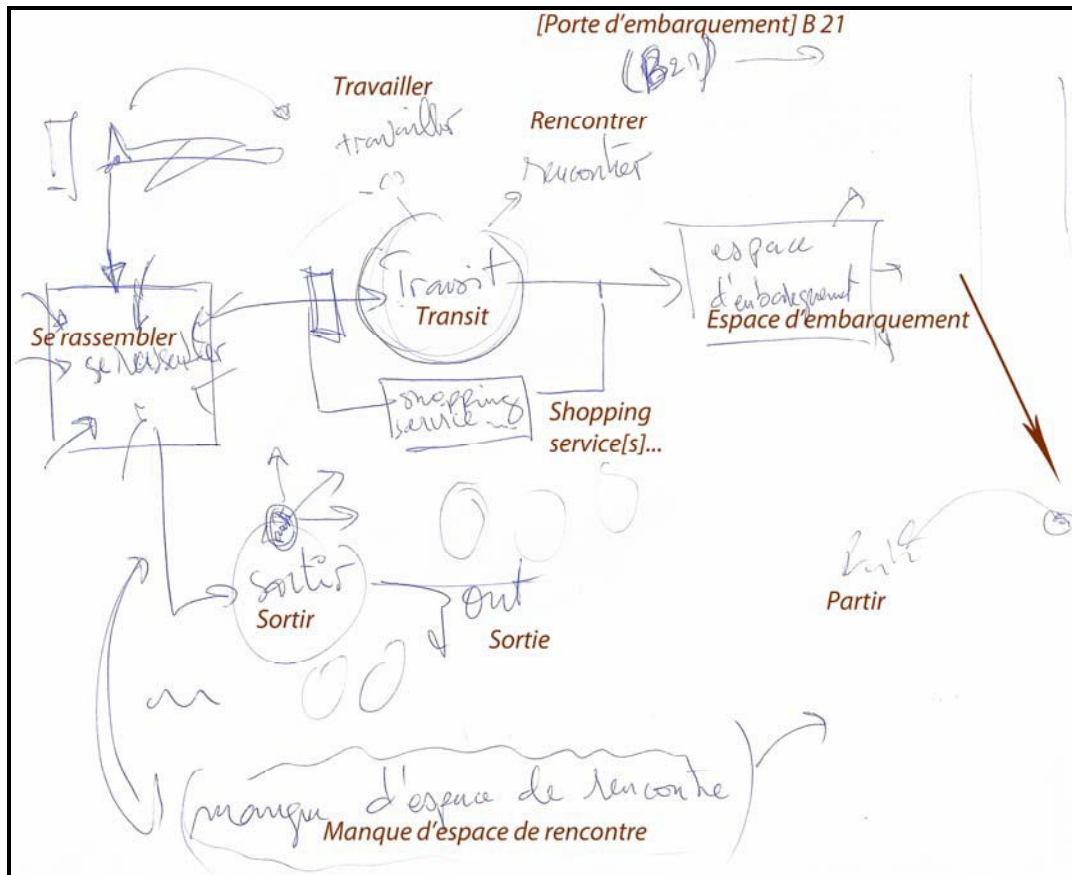 [Porte d'embarquement] B 21
(B21)
Travailler
travailler
Rencontrer
rencontrer
espace
d'embarquement
Espace d'embarquement
Transit
Transit
Se rassembler
se rassembler
shopping
service...
Shopping
service[s]...
sortir
Sortir
out
Sortie
Partir
manque d'espace de rencontre
Manque d'espace de rencontre